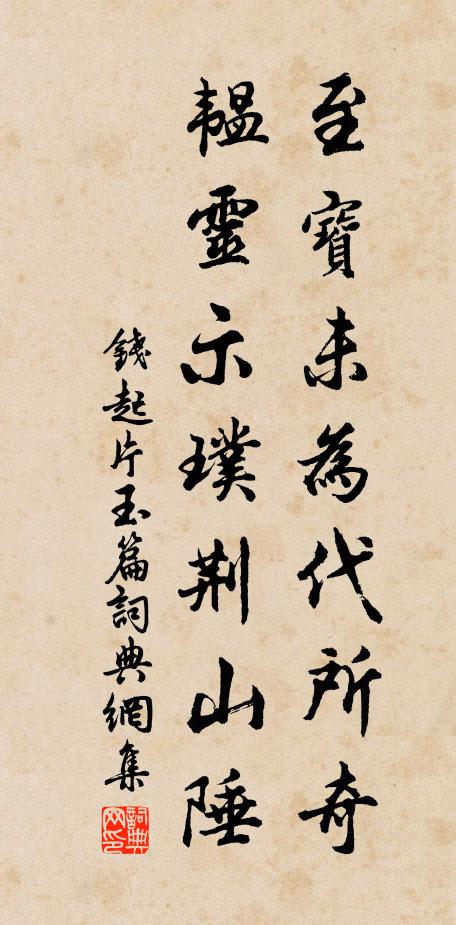 至寶未為代所奇
韞靈示璞荆山陲
錢起片玉篇詞典網集
詞典網印